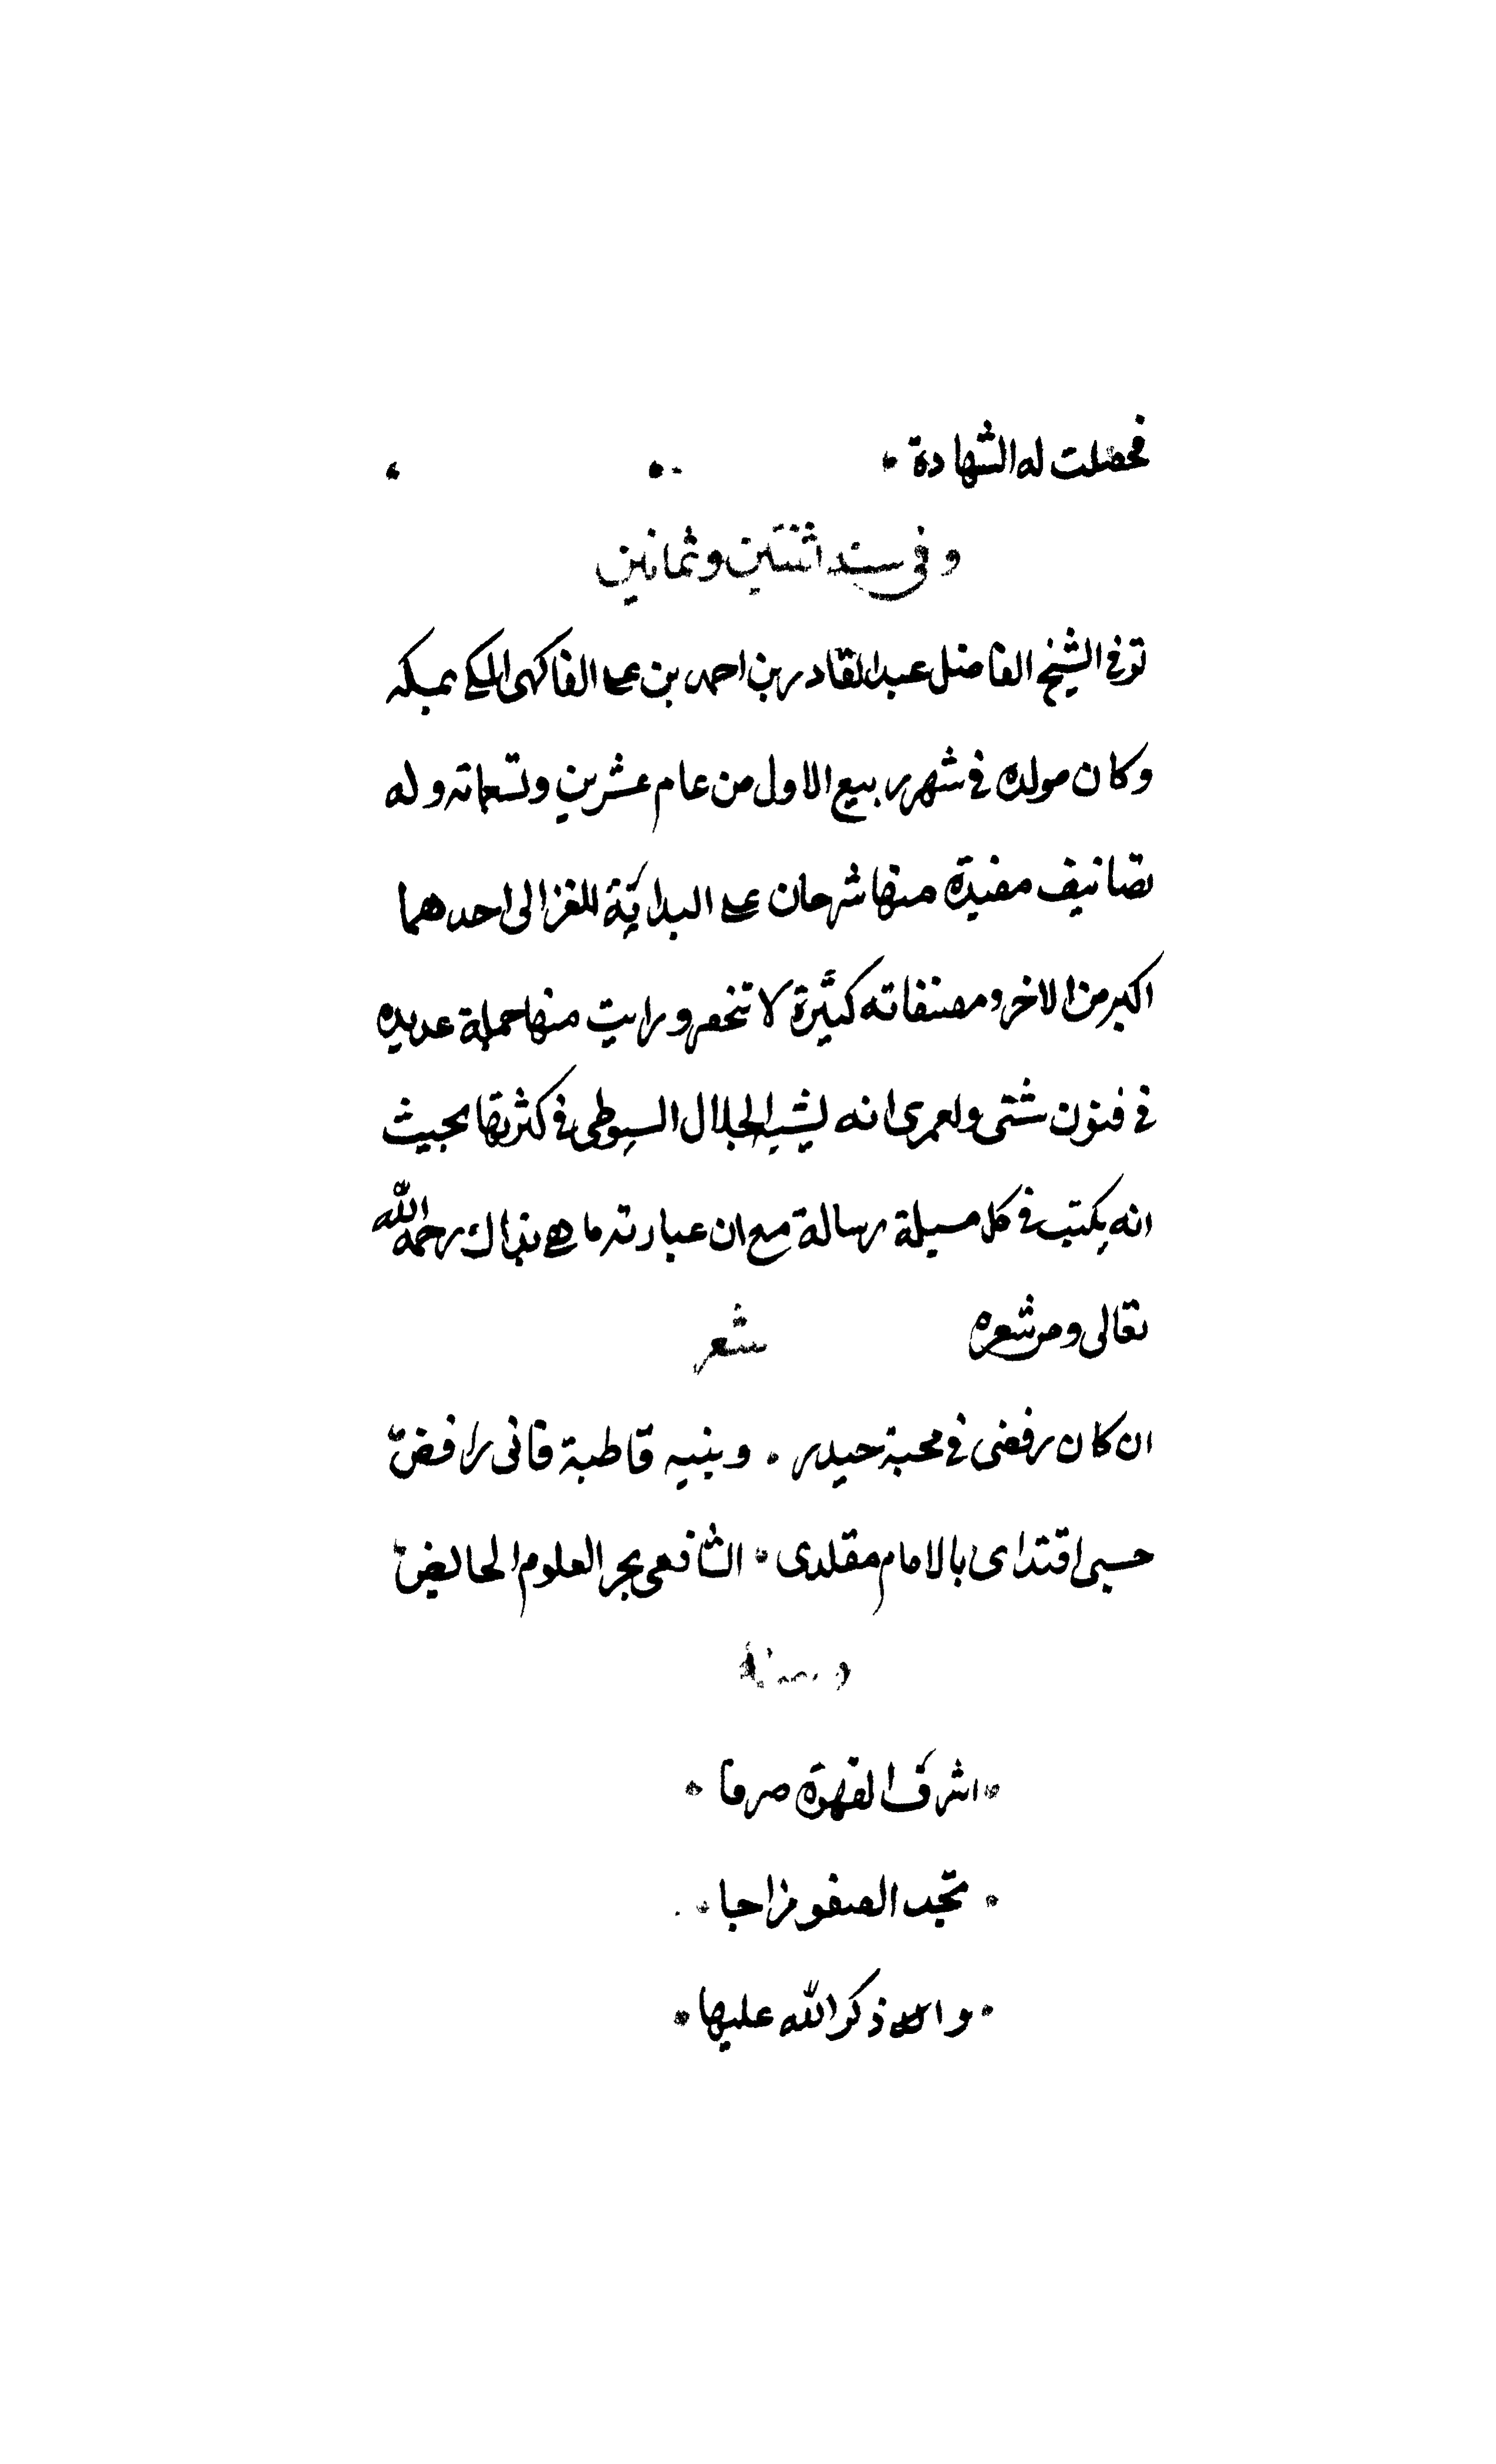 فحصلت له الشهادة
وفي سنه اثنتين وثمانين
توفي الشيخ الفاضل عبدالقادر بن احمد بن على الفاكهى المكي بمكه
وكان مولده في شهر ربيع الاول من عام عشرين وتسعماته وله
تصانيف مفيدة منها شرحان على البداية للغزالى احدهما
اكبر من الاخر ومصنفاته كثيرة لا تنحصر ورايت منها جملة عديده
في فنون شتى ولعمرى انه يشبه الجلال السيوطى في كثرتها بحيث
انه يكتب في كل مسيلة رسالة مع ان عبارته ما هي بذاك رحمه الله
تعالى ومن شعره شعر
ان كان رفضى في محبة حيدر . وبنيه قاطبة فانى رافض
حسبى اقتداى بالامام مقلدى * الشافعى بحر العلوم الخايض
ومنه
* اشرف القهوة صرفا *
* تجد الصفو مزاجا *
* و ذكر الله عليها *